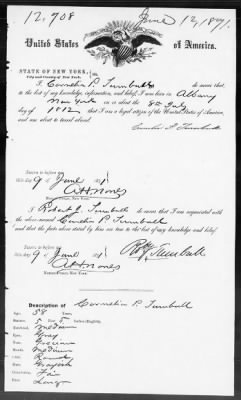 12,708 June 12, 1871.
United States of America.
STATE OF NEW YORK,
City and County of New York. ss.
I Cornelia P. Turnbull do swear that,
to the best of my knowledge, information, and belief, I was born in Albany
New York on or about the 8th July
day of 1812 that I am a legal citizen of the United States of America,
and am about to travel abroad.
Cornelia P. Turnbull
Sworn to before
this 9 June 187
Notary Public, New York.
I Robert J. Turnbull do swear that I am acquainted with
the above named Cornelia P. Turnbull
and that the facts above stated by her are true to the best of my knowledge and belief.
Sworn to before
this 9 June 187
Robt J Turnbull
Notary Public, New York.
Description of Cornelia P. Turnbull
Age: 58 Years.
Stature: 5 Feet 5 Inches (English).
Forehead: Medium
Eyes: Gray
Nose: Grecian
Mouth: Medium
Chin: Round
Hair: Grayish
Complexion: Fair
Face: Large